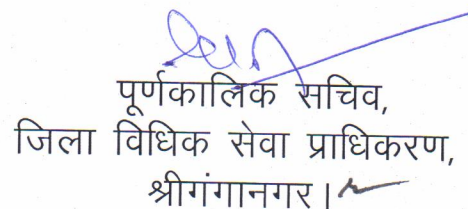 पूर्णकालिक सचिव,
जिला विधिक सेवा प्राधिकरण,
श्रीगंगानगर।